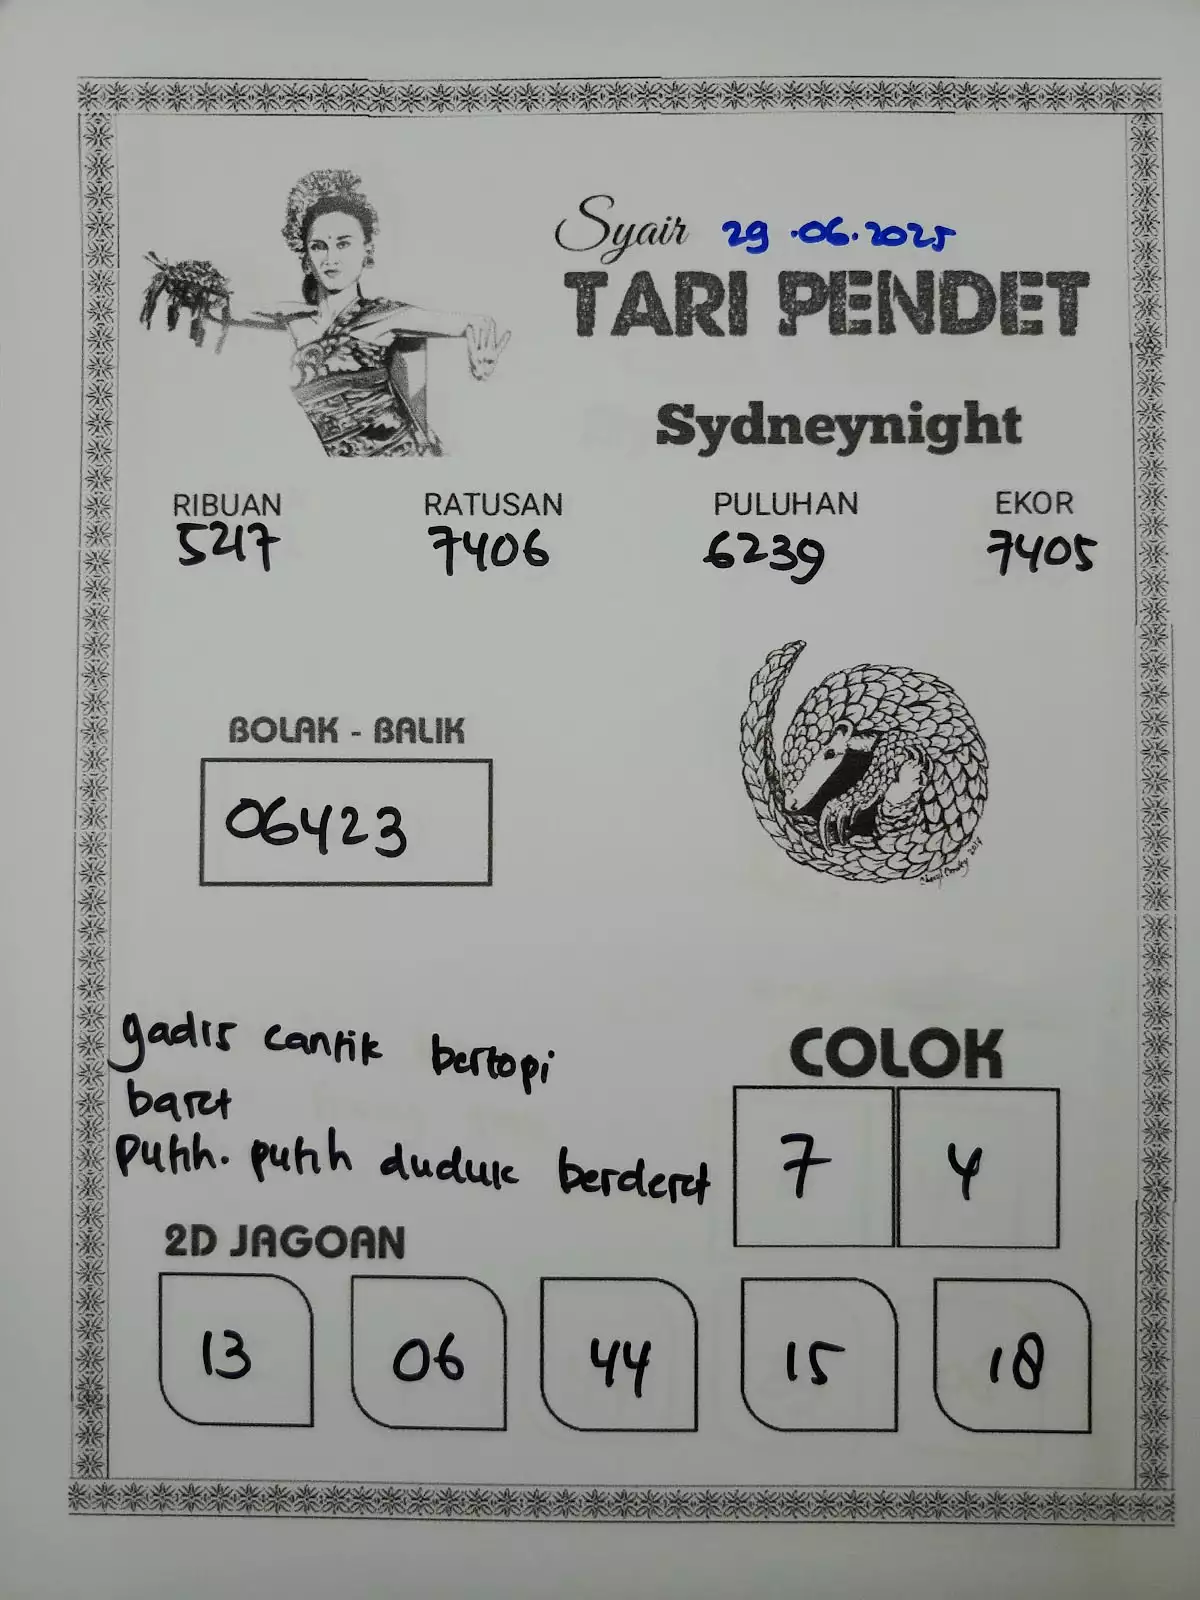 Syair 29.06.2025
TARI PENDET
Sydneynight
RIBUAN RATUSAN PULUHAN EKOR
5217 7406 6239 7405
BOLAK - BALIK
06423
gadis cantik bertopi
baret
putih-putih duduk berderet
COLOK
7 4
2D JAGOAN
13 06 44 15 18